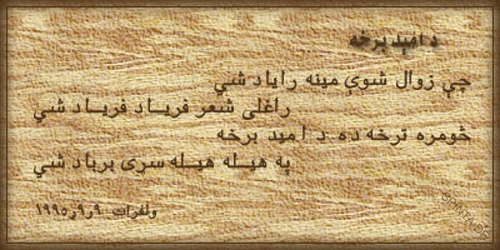 د امېد برخه
چې زوال شوې مينه راياد شي
راغلی شعر فرياد فرياد شي
څومره ترخه ده د اميد برخه
په هيله هيله سړی برباد شي
ولفرات ۹ر۹ر۱۹۹۵